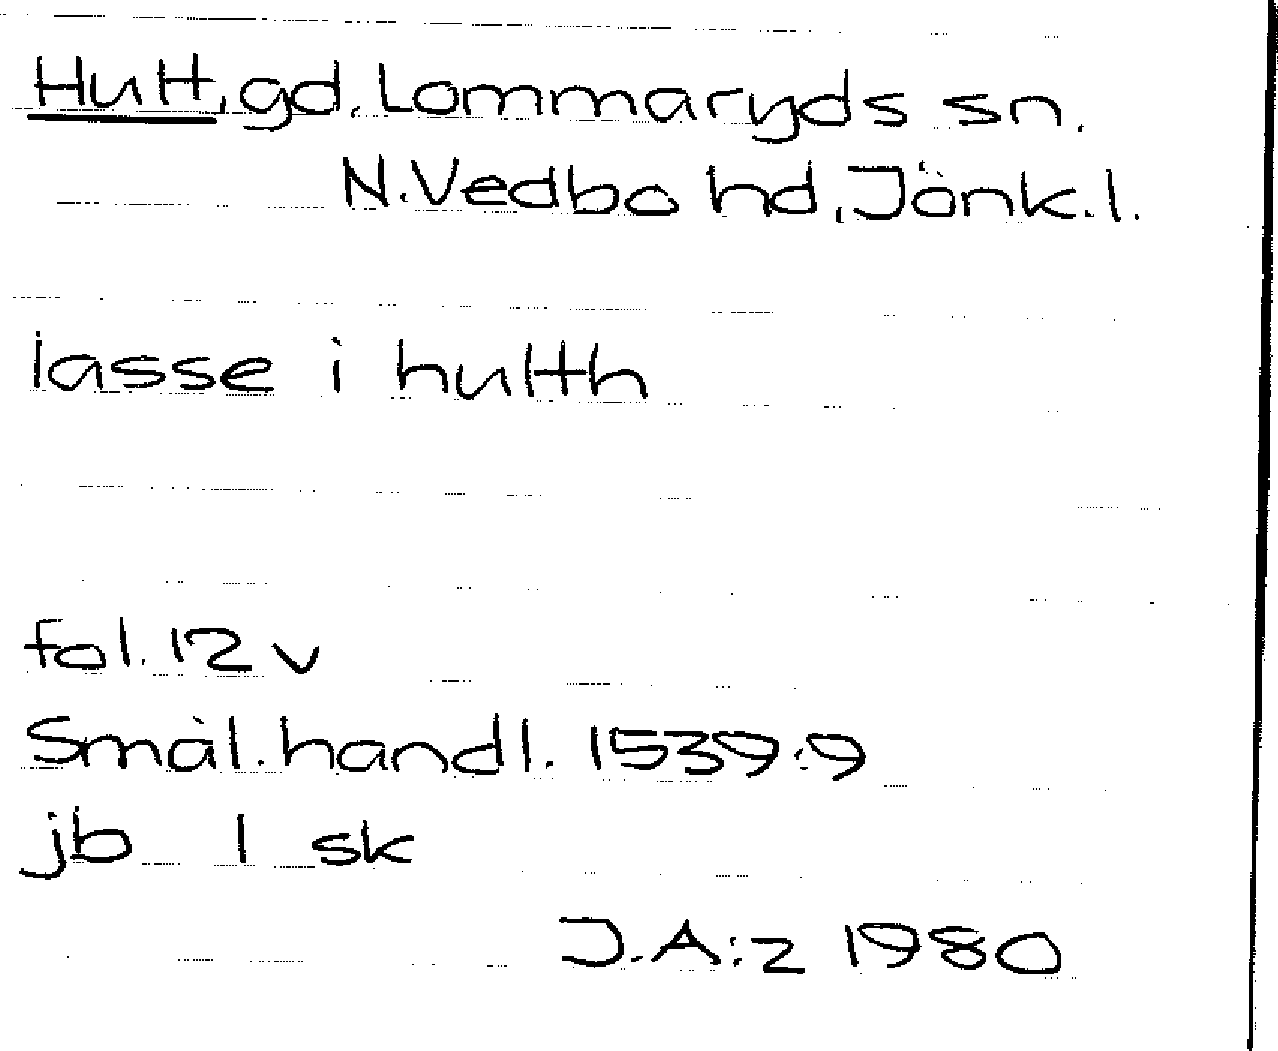 Hult, gd. Lommaryds sn.
N. Vedbo hd, Jönk. l.
lasse i hulth
fol. 12 v
Smål. handl. 1539:9
jb 1 sk
J.A:z 1980